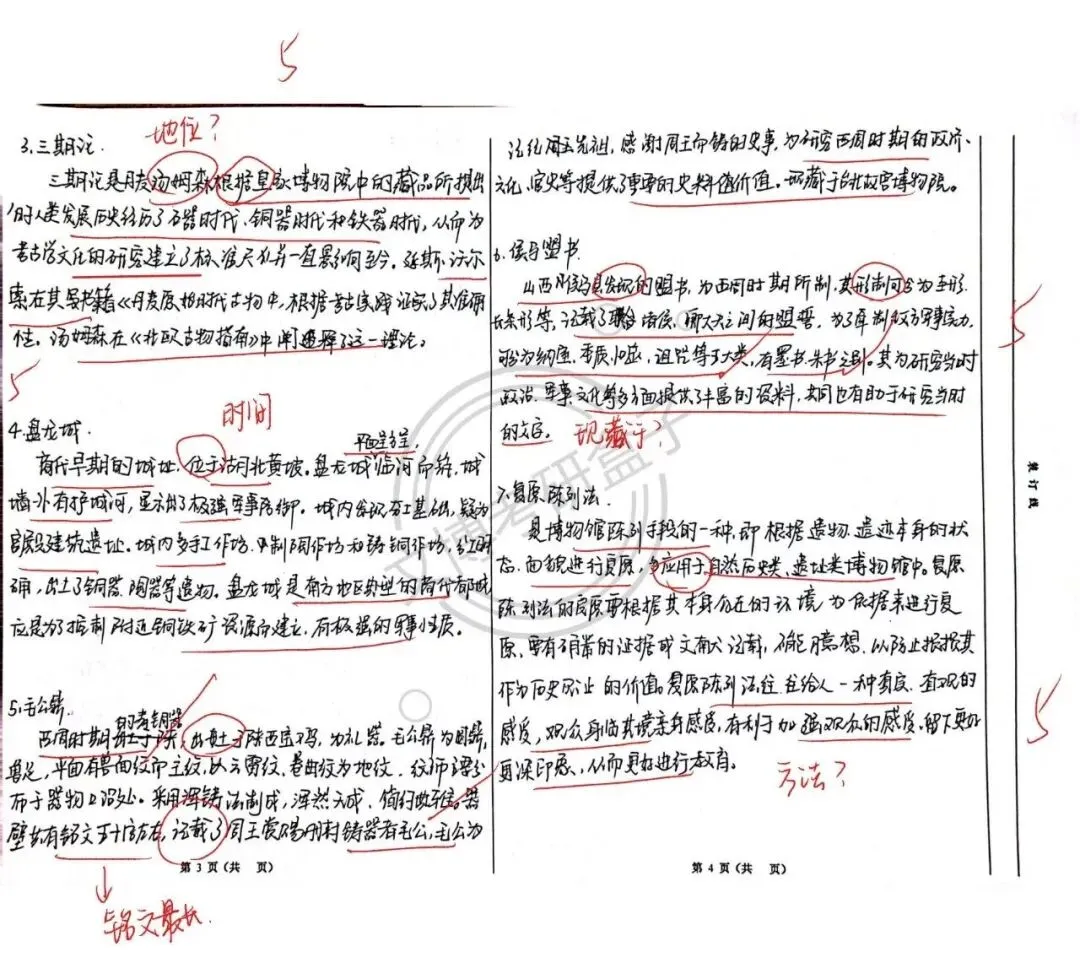 5
地位?
3.三期论.
三期论是丹麦汤姆森根据皇家博物院中的藏品所提出
的人类发展历史经历了石器时代、铜器时代和铁器时代,从而为
考古学文化的研究建立了标准尺度并一直影响至今。沃尔
索在其书籍《丹麦原始时代古物》中,根据考古实践证明了其准确
性。汤姆森在《北欧古物指南》中阐述了这一理论。
5
时间
4.盘龙城.
平面呈方呈,
商代早期的城址.位于湖北黄坡。盘龙城临河而筑,城
墙外有护城河,显示出了极强军事防御。城内发现夯土基础,疑为
宫殿建筑遗址。城内多手工作坊、制陶作坊和铸铜作坊,分工明
确,出土了铜器、陶器等遗物。盘龙城是南方地区典型的商代都城
应是为了控制附近铜铁矿资源而建立,有极强的军事性质。
5.毛公鼎.
的青铜器
西周时期,出土于陕西宝鸡,为礼器。毛公鼎为圆鼎,
兽足,平面有兽面纹印主纹,以云雷纹、卷曲纹为地纹,纹饰
布于器物口沿处。采用浑铸法制成,浑然天成、简约
壁共有铭文五十字左右,记载了周王赏赐铸器者毛公,毛公为
铭文最长
第 3 页(共 页)
记化周王先祖,感谢周王而铸的史事,为研究西周时期的政治、
文化、官史等提供了重要的史料价值。现藏于台北故宫博物院。
6.侯马盟书
山西侯马县发现的盟书,为西周时期所制,其形制可分为圭形、
长条形等,记载了诸侯、卿大夫之间的盟誓,为了牵制权力军事
分为纳室、委质、诅咒等大类,有墨书、朱书之别。其为研究当时
政治、军事、文化等多方面提供了丰富的资料,共同也有助于研究当时
的文字。
现藏于?
5
7.复原陈列法.
是博物馆陈列手段的一种,即根据遗物、遗迹本身的状
态、面貌进行复原,多应用于自然历史类、遗址类博物馆中。复原
陈列法的复原要根据其本身存在的环境为依据来进行复
原,要有确凿的证据或文献记载,不能臆想,以防止损毁其
作为历史见证的价值。复原陈列法往往给人一种真实、直观的
感度,观众身临其境亲身感度,有利于加强观众的感度,留下更加
更深印象,从而更好进行教育。
方法?
5
第 4 页(共 页)
装订线
文博考研盒子